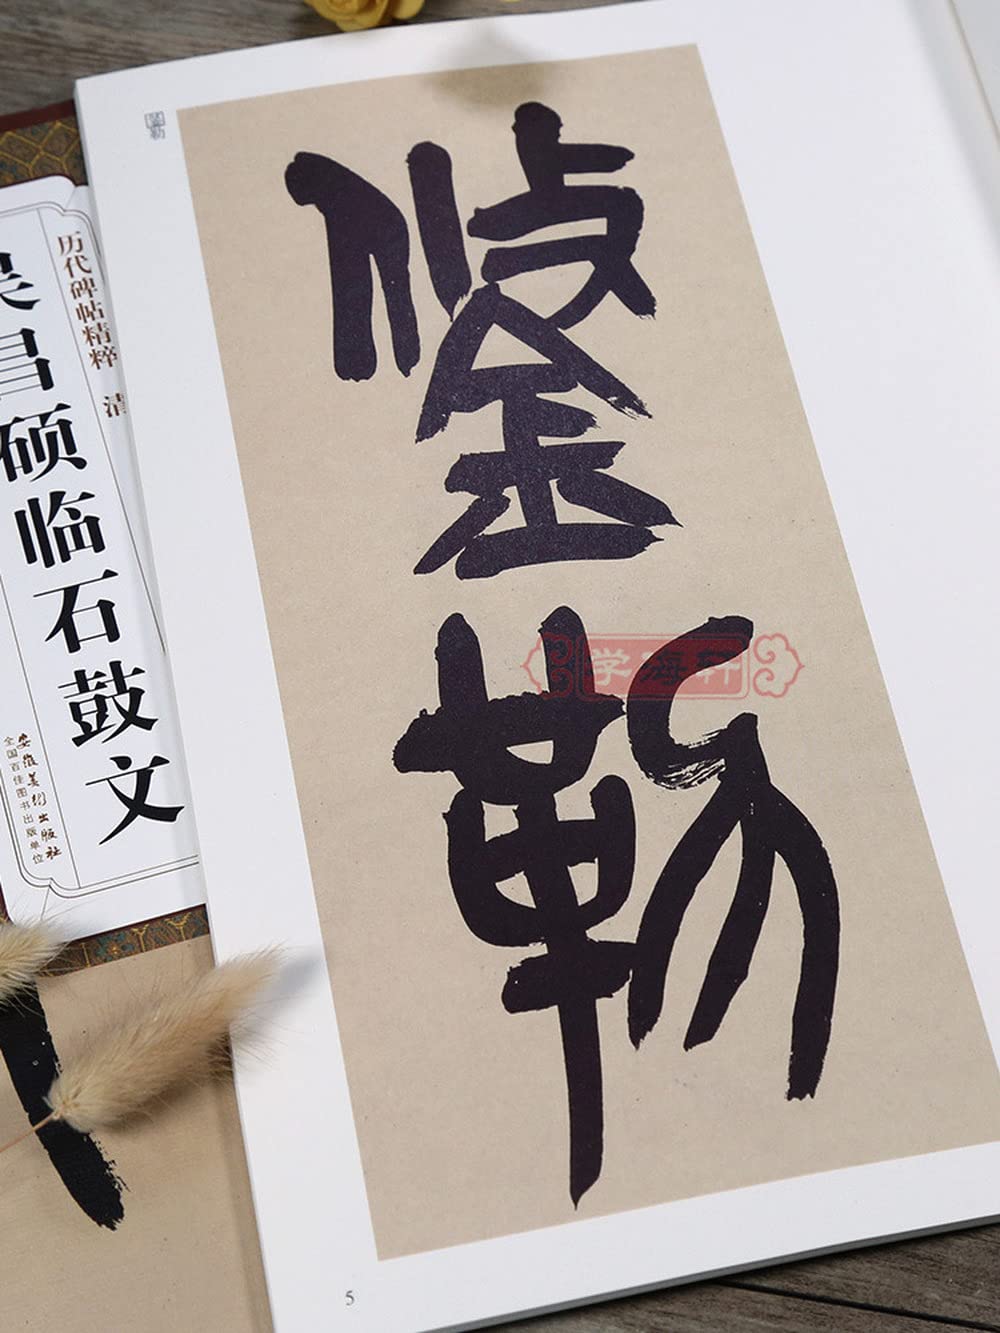 鋚勒
鋚
勒
学海轩
历代碑帖精粹 清
吴昌硕临石鼓文
安徽美术出版社
全国百佳图书出版单位
5